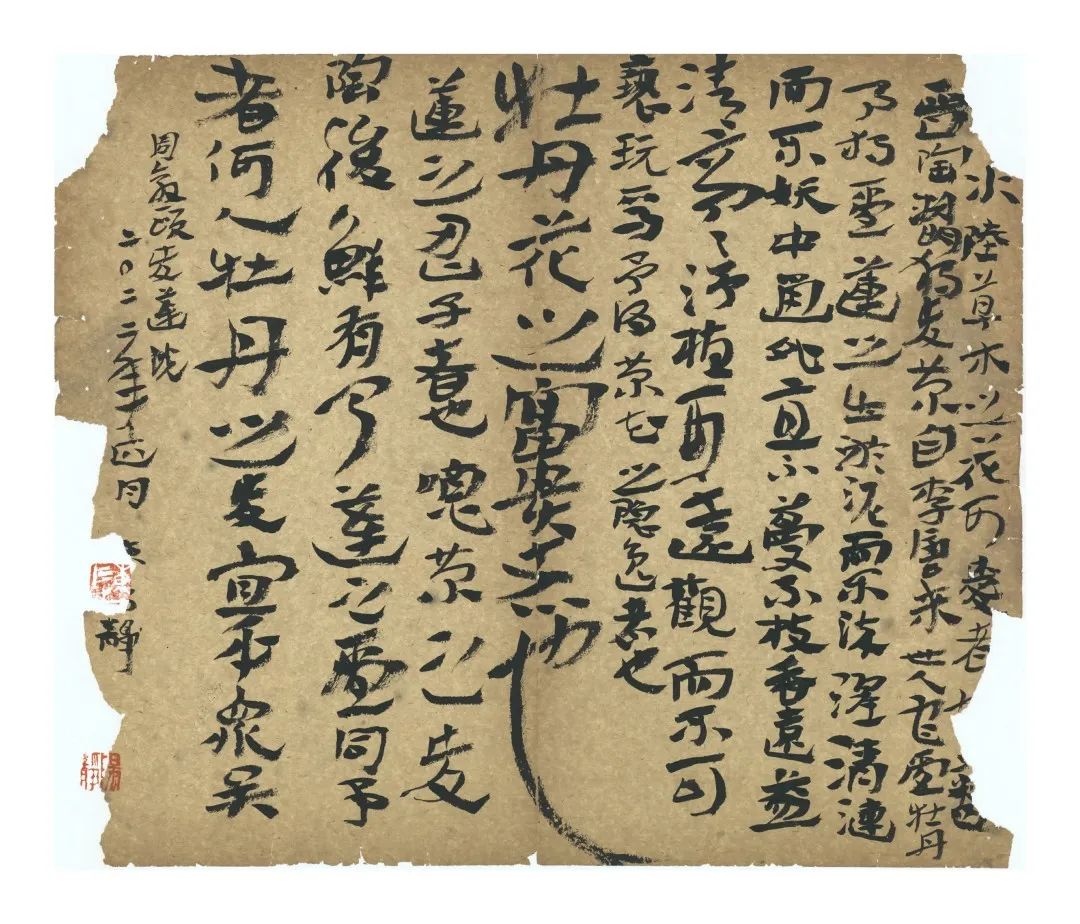 水陸草木之花可愛者
晉陶淵明獨愛菊自李唐來世人甚愛牡丹
予獨愛蓮之出淤泥而不染濯清漣
而不妖中通外直不蔓不枝香遠益
清亭々淨植可遠觀而不可
褻玩焉予謂菊花之隱逸者也
牡丹花之富貴者也
蓮之君子者也噫菊之愛
陶後鮮有聞蓮之愛同予
者何人牡丹之愛宜乎衆矣
周敦頤愛蓮說
二〇二二年十月
靜